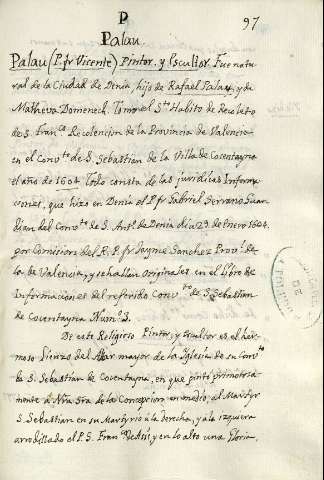 P
97
Palau.
Palau (P. fr Vicente) Pintor, y Escultor. Fue natu
ral de la Ciudad de Denia, hijo de Rafael Palau, y de
Mathea Domenech. Tomó el Sto Habito de Recoleto
de S. Franca Recoleccion de la Provincia de Valencia
en el Convto de S. Sebastian de la Villa de Cocentayna
el año de 1604. Todo consta de las juridicas Informa
ciones, que hizo en Denia el P. fr Gabriel Serrano Guar
dian del Convto de S. Anto de Denia dia 23 de Enero 1604.
por Comision del R. P. fr Jayme Sanchez Provl de
la de Valencia, y se hallan Originales en el Libro de
Informaciones del referido Convto de S. Sebastian
de Cocentayna Num.
De este Religioso Pintor, y Escultor es el her
moso Lienzo del Altar mayor de la Iglesia de su Convto
de S. Sebastian de Cocentayna, en que pintó primorosa
mente a Ntra Sra de la Concepcion en medio, al Martyr
S. Sebastian en su Martyrio à la derecha, y a la izquierda
arrodillado el P. S. Franco de Asis, y en lo alto una Gloria,